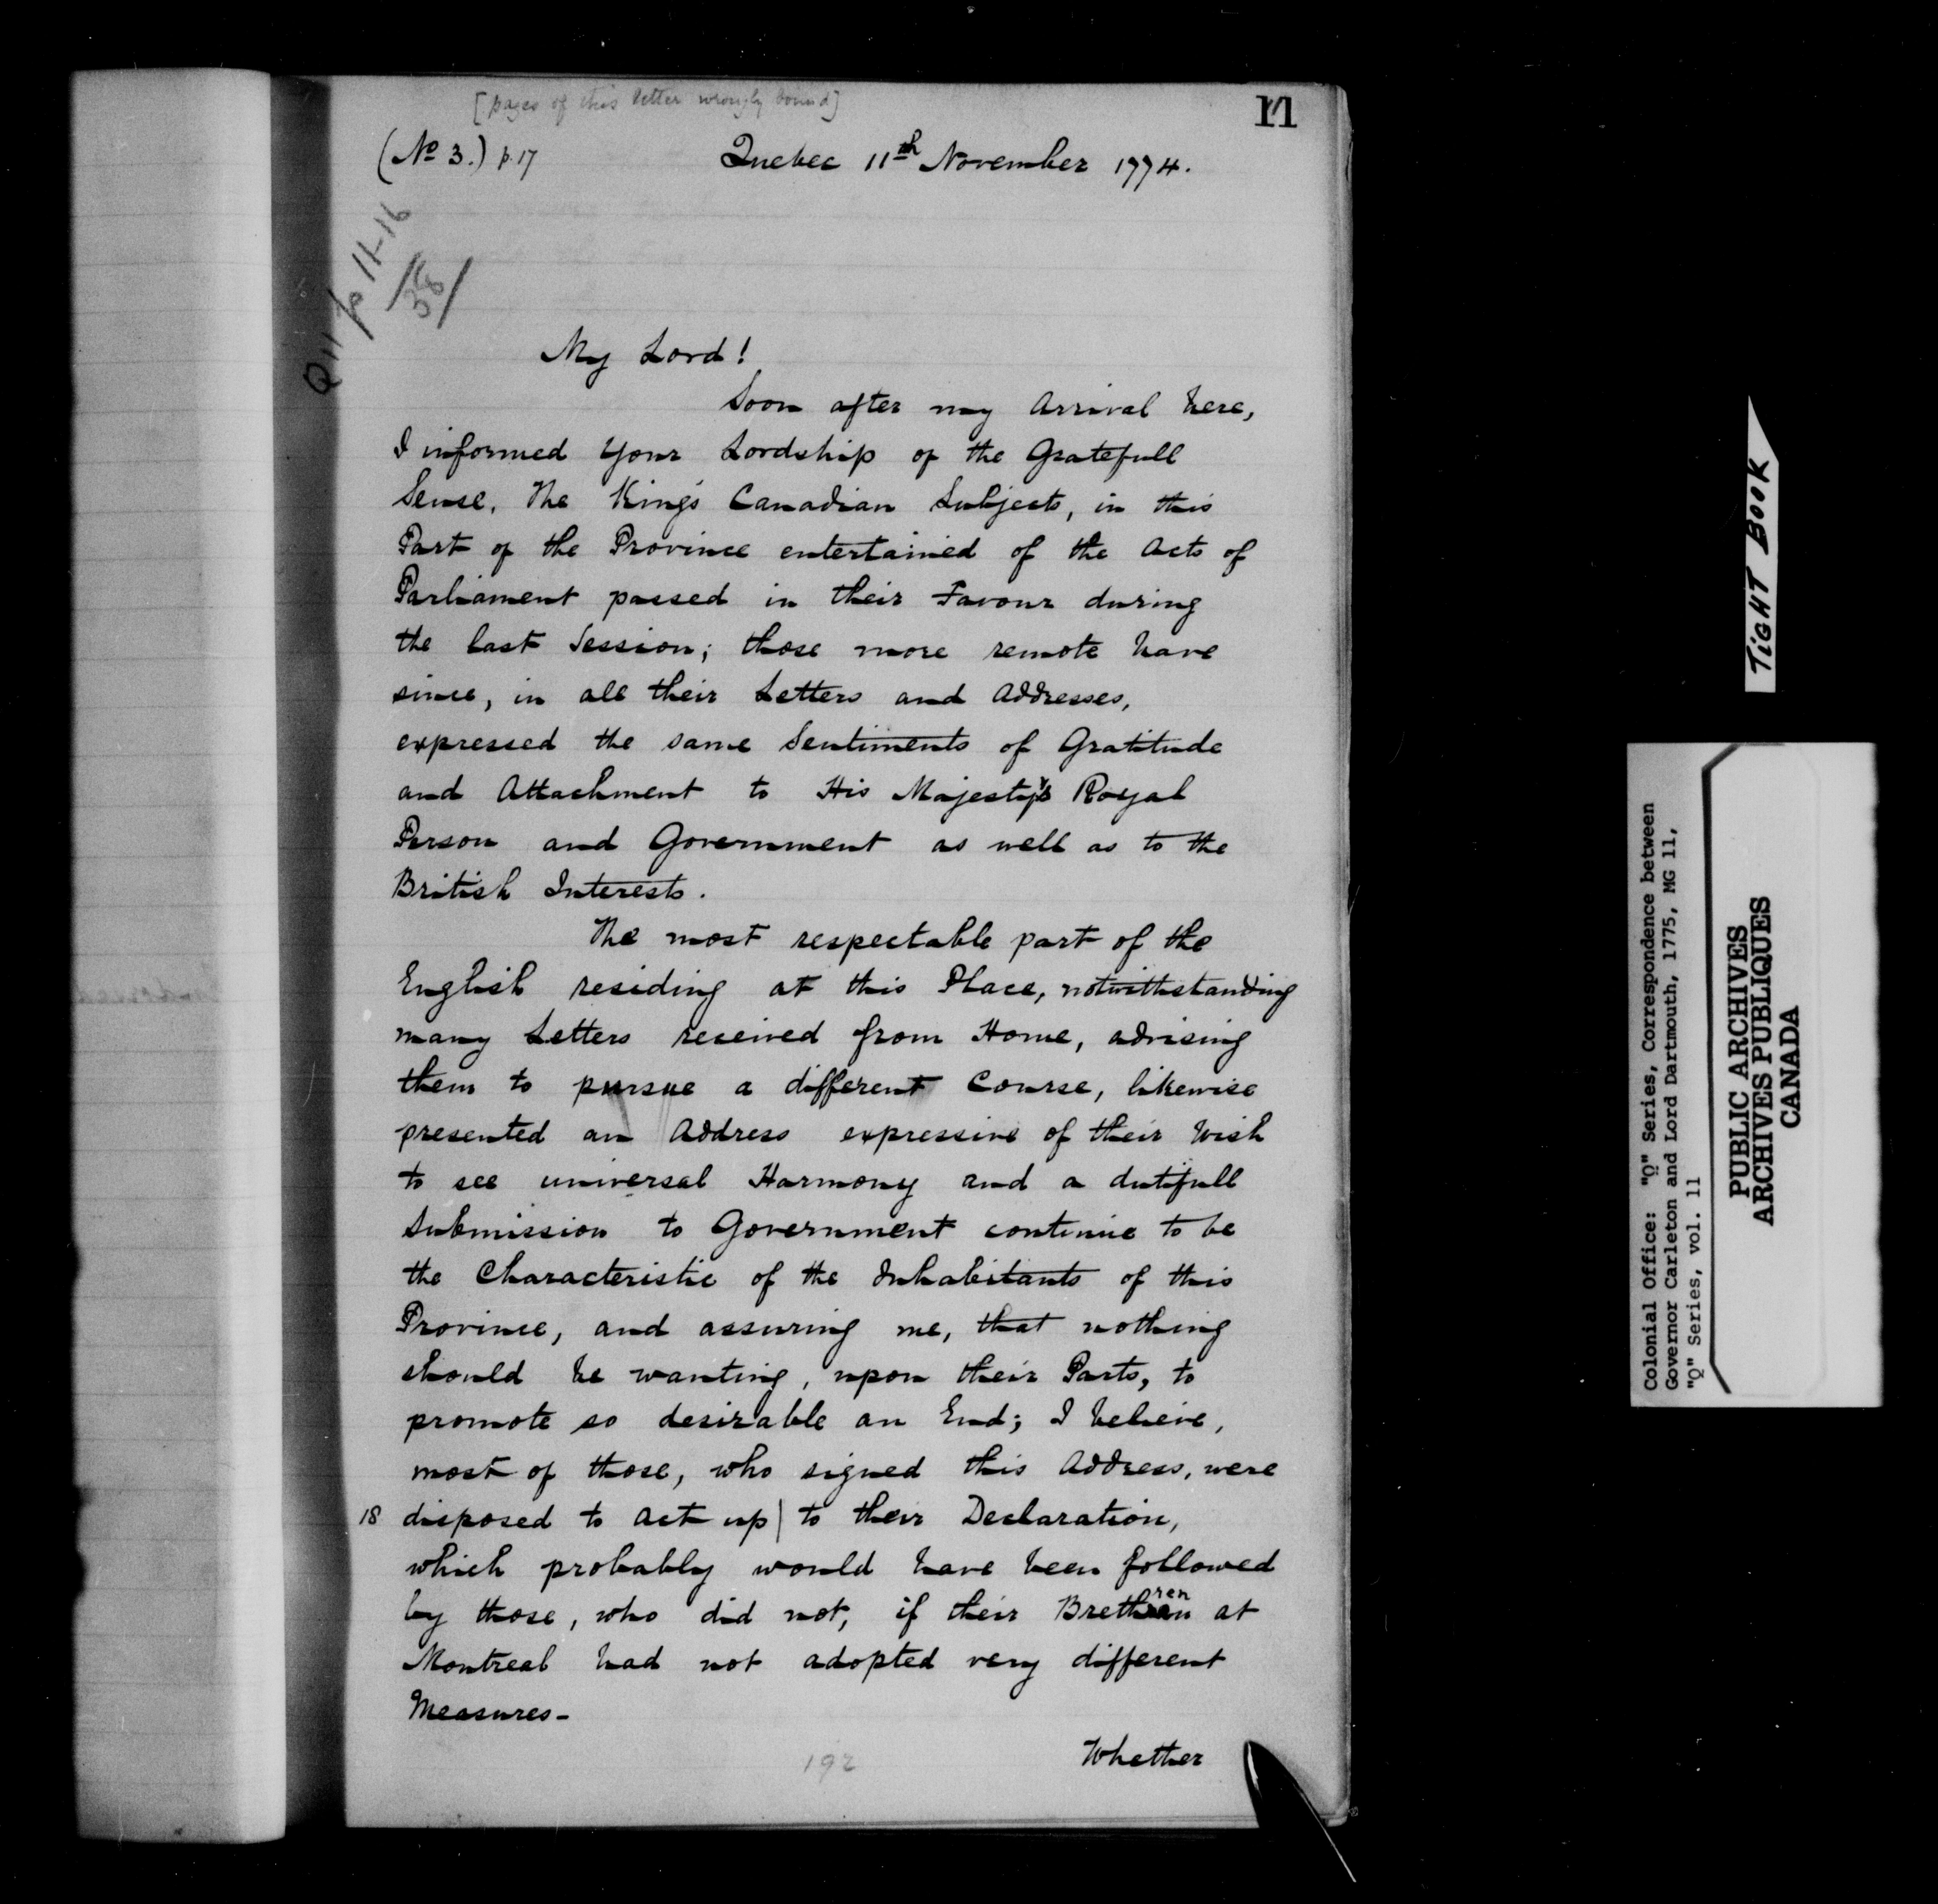 [pages of this letter wrongly bound]
11
(No 3.) p. 17
Quebec 11th November 1774.
Q 11 p 11-16
/38/
My Lord!
Soon after my Arrival here,
I informed Your Lordship of the Gratefull
Sense, The King's Canadian Subjects, in this
Part of the Province entertained of the Acts of
Parliament passed in their Favour during
the last Session; those more remote have
since, in all their Letters and Addresses,
expressed the same Sentiments of Gratitude
and Attachment to His Majesty's Royal
Person and Government as well as to the
British Interests.
The most respectable part of the
English residing at this Place, notwithstanding
many Letters received from Home, advising
them to pursue a different Course, likewise
presented an Address expressive of their Wish
to see universal Harmony and a dutifull
Submission to Government continue to be
the Characteristic of the Inhabitants of this
Province, and assuring me, that nothing
should be wanting, upon their Parts, to
promote so desirable an End; I believe,
most of those, who signed this Address, were
18 disposed to act up | to their Declaration,
which probably would have been followed
by those, who did not, if their Brethren at
Montreal had not adopted very different
Measures-
Whether
192
TIGHT BOOK
Colonial Office: "Q" Series, Correspondence between
Governor Carleton and Lord Dartmouth, 1775, MG 11,
"Q" Series, vol. 11
PUBLIC ARCHIVES
ARCHIVES PUBLIQUES
CANADA